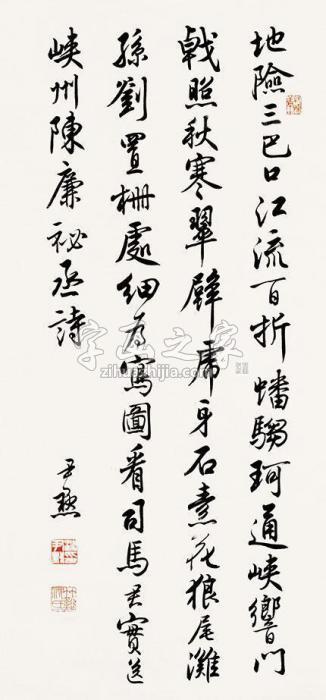 地險三巴口江流百折蟠騶珂通峽響門
戟照秋寒翠壁虎牙石素花狼尾灘
孫劉置柵處細為寫圖看司馬君實送
峽州陳廉祕丞詩
尹默
字画之家
zihuashijia.com